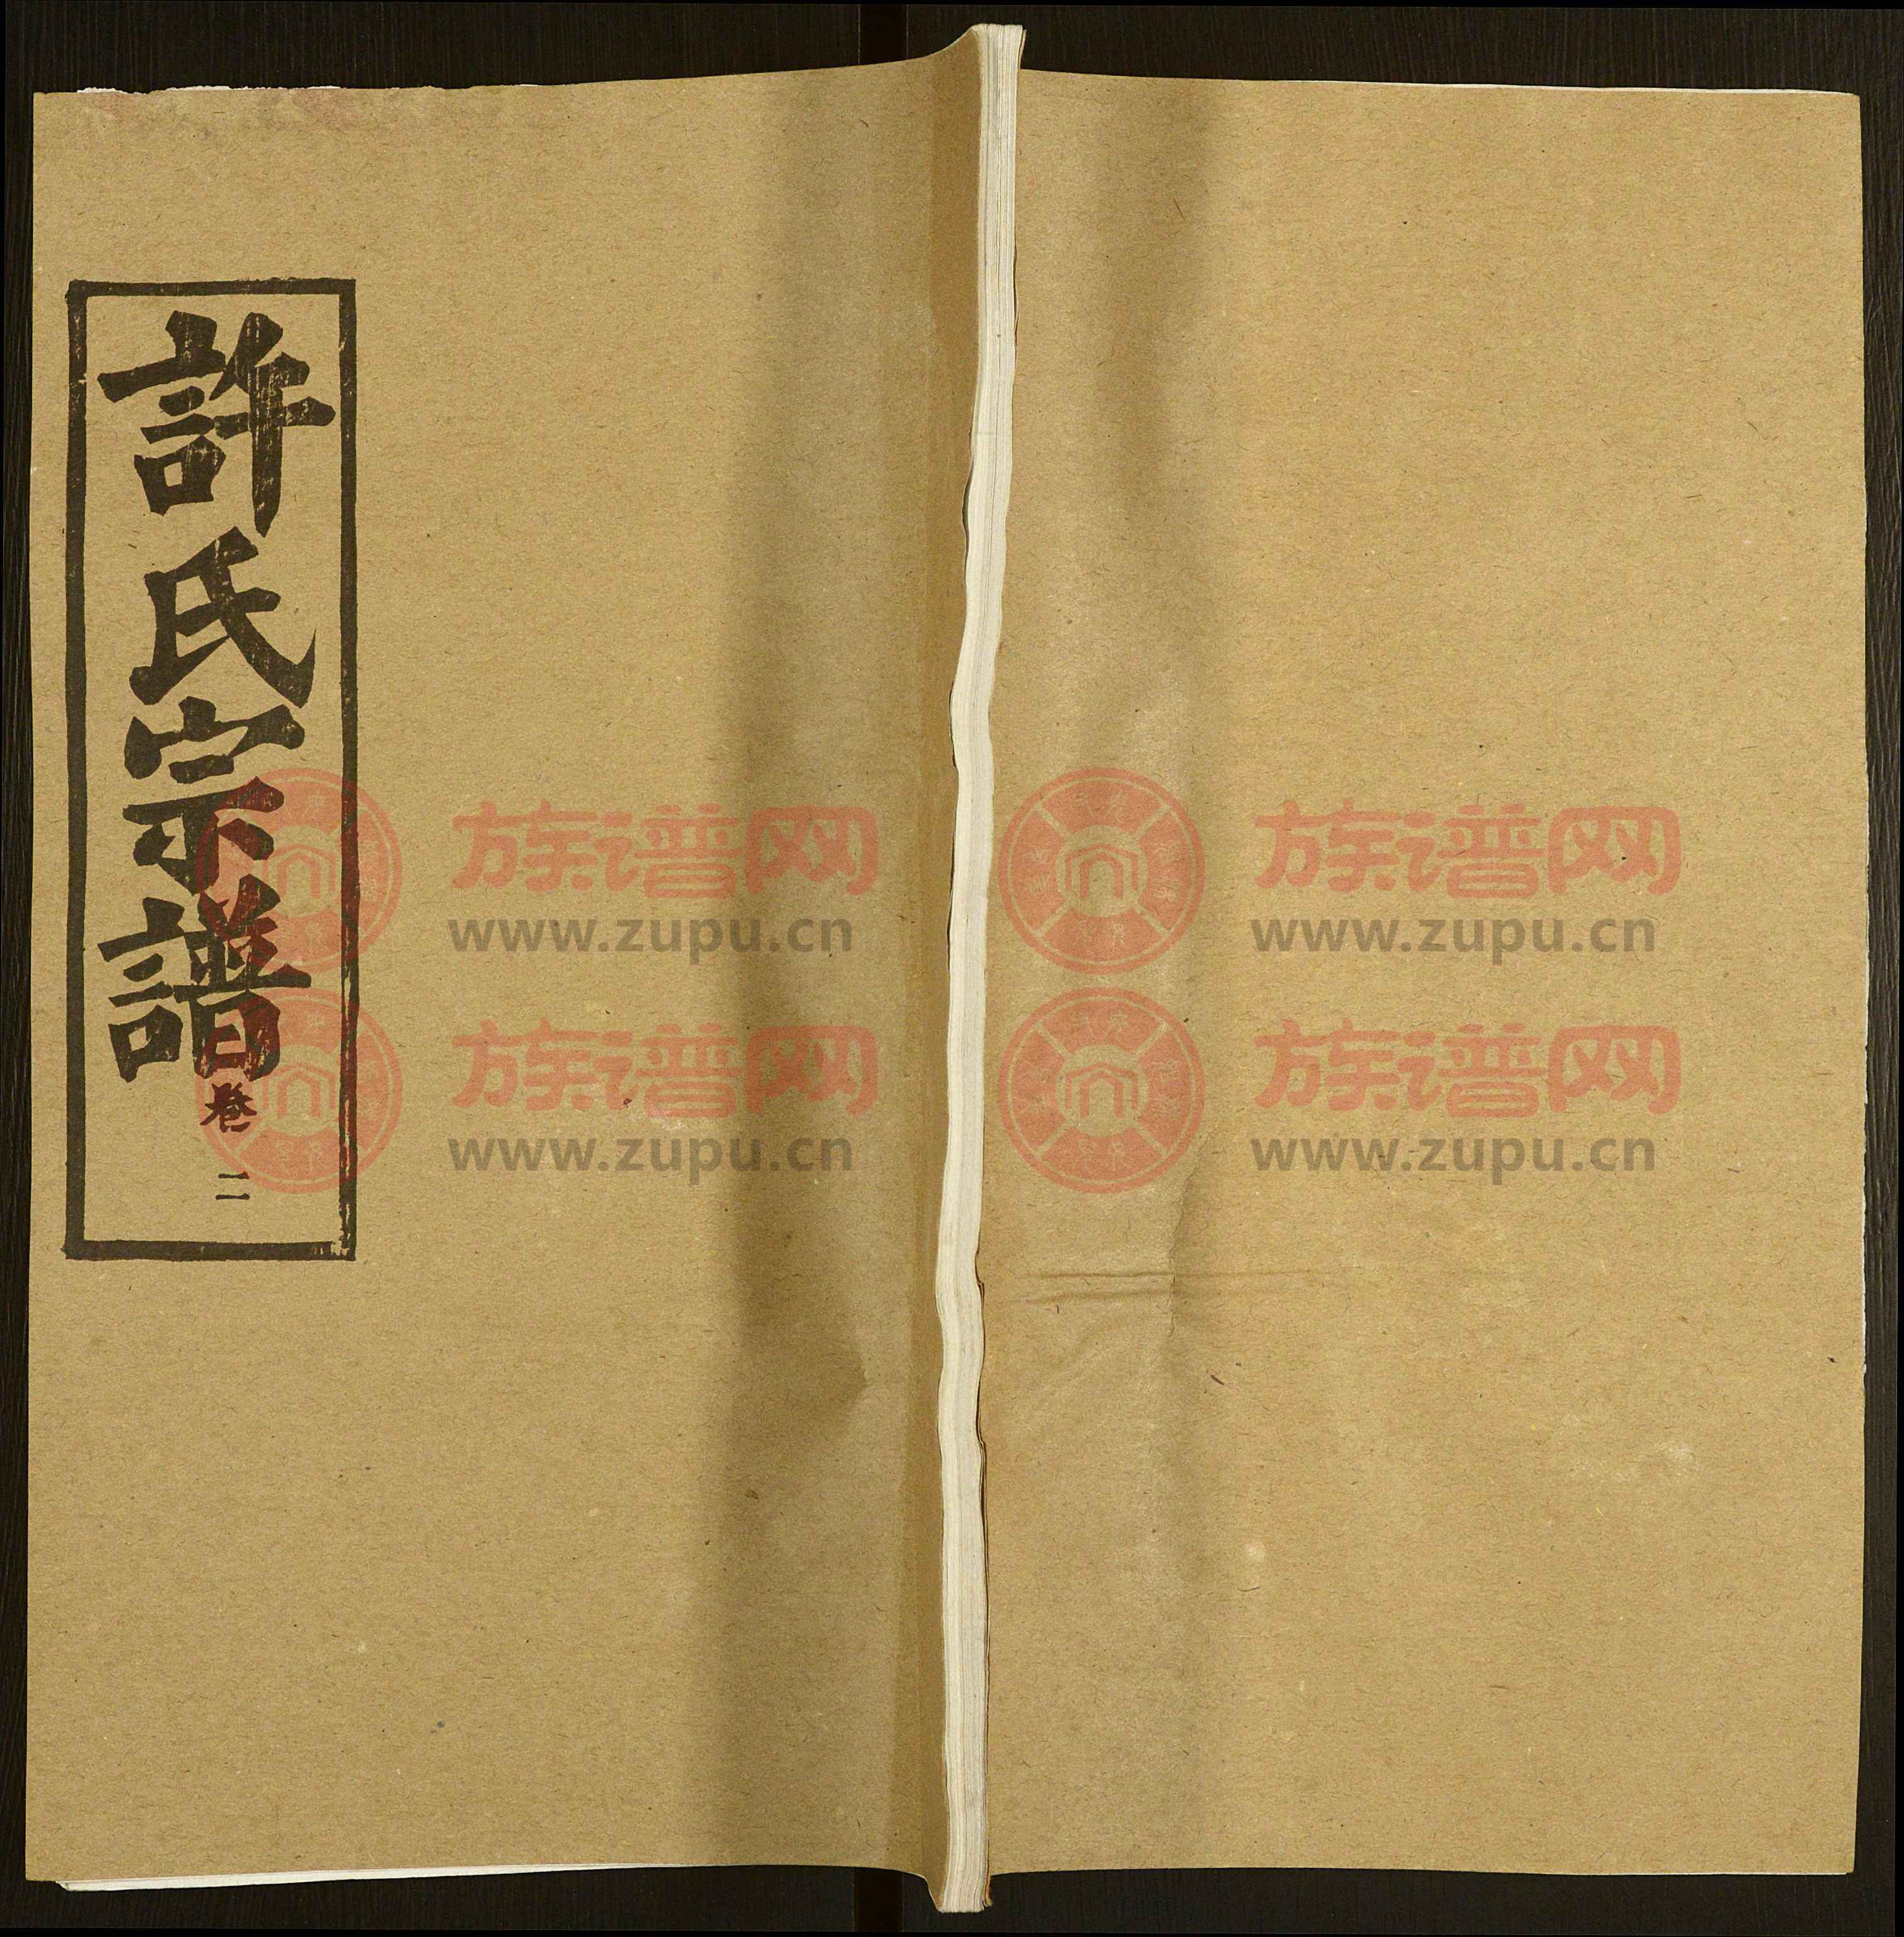 許氏宗譜
卷二
族谱网
www.zupu.cn
族谱网
www.zupu.cn
族谱网
www.zupu.cn
族谱网
www.zupu.cn